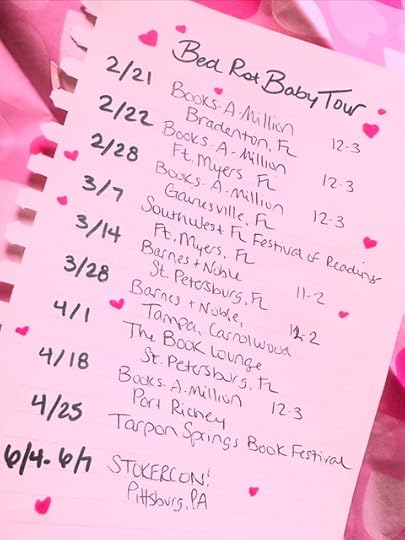 Bed Rot Baby Tour
2/21 Books-A-Million 12-3
Bradenton, FL
2/22 Books-A-Million 12-3
Ft. Myers FL
2/28 Books-A-Million 12-3
Gainesville, FL
3/7 Southwest FL Festival of Reading
Ft. Myers, FL
3/14 Barnes + Noble 11-2
St. Petersburg, FL
3/28 Barnes + Noble, 12-2
Tampa, Carrolwood
4/1 The Book Lounge
St. Petersburg, FL
4/18 Books-A-Million 12-3
Port Richey
4/25 Tarpon Springs Book Festival
6/4-6/7 STOKERCON!
Pittsburg, PA